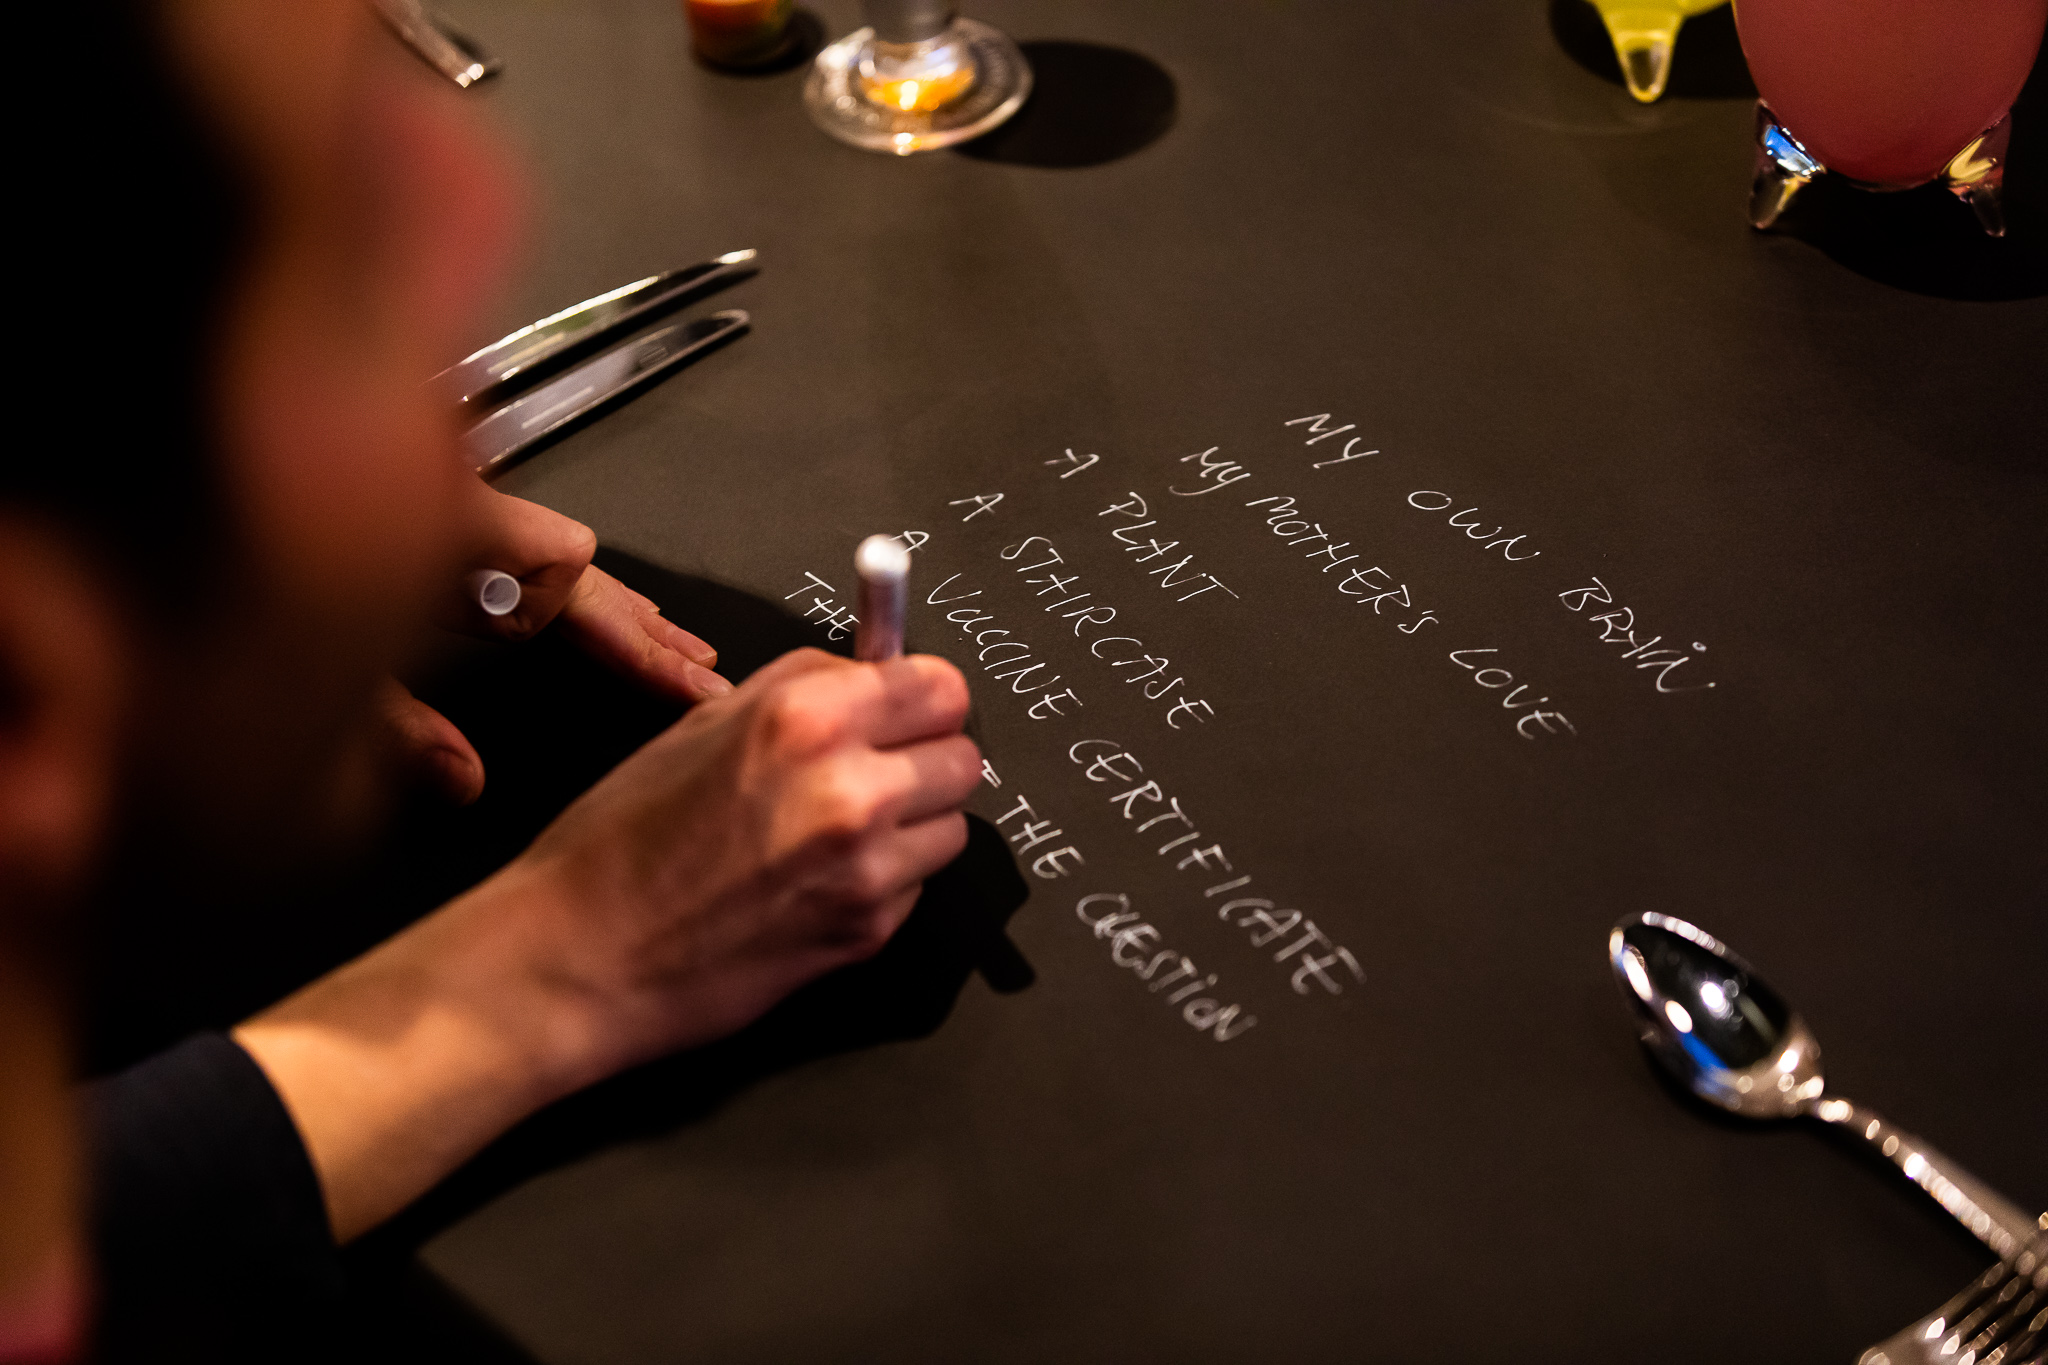 MY OWN BRAIN
MY MOTHER'S LOVE
A PLANT
A STAIRCASE
A VACCINE CERTIFICATE
THE THE QUESTION